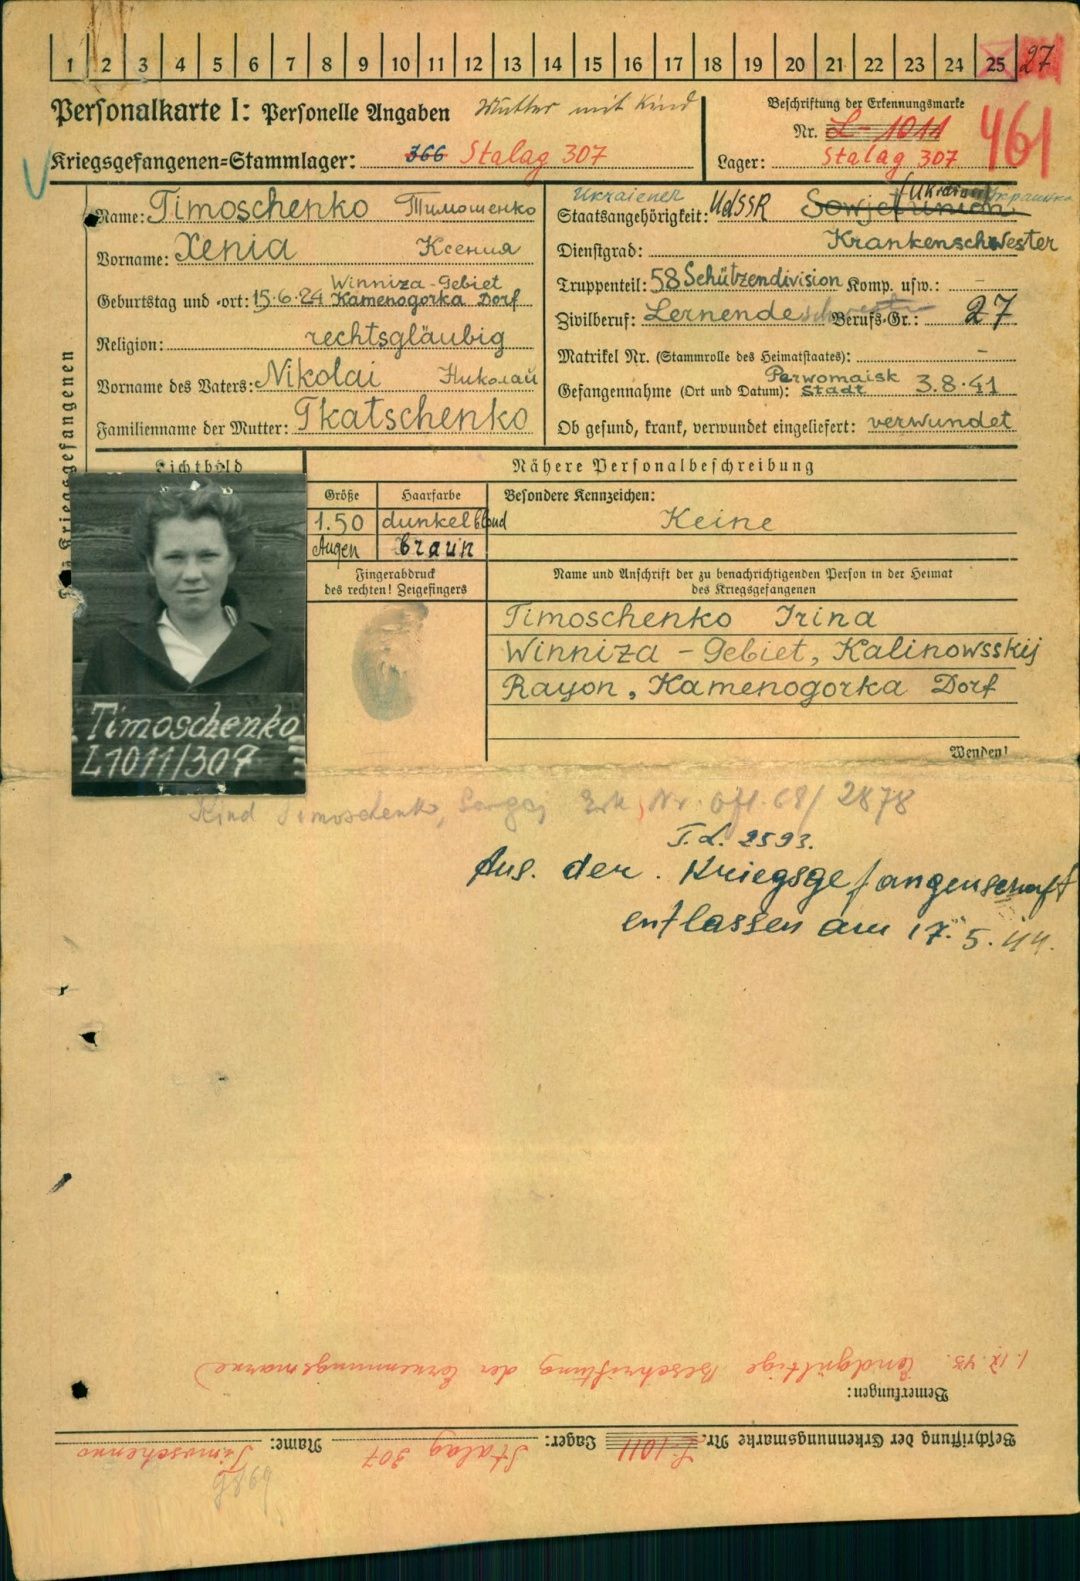 1 2 3 4 5 6 7 8 9 10 11 12 13 14 15 16 17 18 19 20 21 22 23 24 25 27
Personalkarte I: Personelle Angaben Mutter mit Kind
Beschriftung der Erkennungsmarke
Nr. L-1011 461
Kriegsgefangenen-Stammlager: 366 Stalag 307
Lager: Stalag 307
Name: Timoschenko Тимошенко
Vorname: Xenia Ксения
Winniza-Gebiet
Geburtstag und -ort: 15.6.24 Kamenogorka Dorf
Religion: rechtsgläubig
Vorname des Vaters: Nikolai Николай
Familienname der Mutter: Tkatschenko
Ukrainer
Staatsangehörigkeit: UdSSR Sowjetunion
Dienstgrad: Krankenschwester
Truppenteil: 58 Schützendivision Komp. usw.: -
Zivilberuf: Lernende Berufs-Gr.: 27
Matrikel Nr. (Stammrolle des Heimatstaates): -
Perwomaisk
Gefangennahme (Ort und Datum): Stadt 3.8.41
Ob gesund, krank, verwundet eingeliefert: verwundet
Kriegsgefangenen
Lichtbild
Nähere Personalbeschreibung
Größe Haarfarbe Besondere Kennzeichen:
1.50 dunkelblond Keine
Augen braun
Fingerabdruck
des rechten! Zeigefingers
Name und Anschrift der zu benachrichtigenden Person in der Heimat
des Kriegsgefangenen
Timoschenko Irina
Winniza - Gebiet, Kalinowsskij
Rayon, Kamenogorka Dorf
Wenden!
Timoschenko
L1011/307
Kind Timoschenko, Erk. Nr. Ofl. 68/2878
T.L. 2593.
Aus. der. Kriegsgefangenschaft
entlassen am 17.5.44.
Beschriftung der Erkennungsmarke Nr. L-1011 Lager: Stalag 307 Name: Timoschenko
Bemerkungen:
1.IX.43. Endgültige Beschriftung der Erkennungsmarke